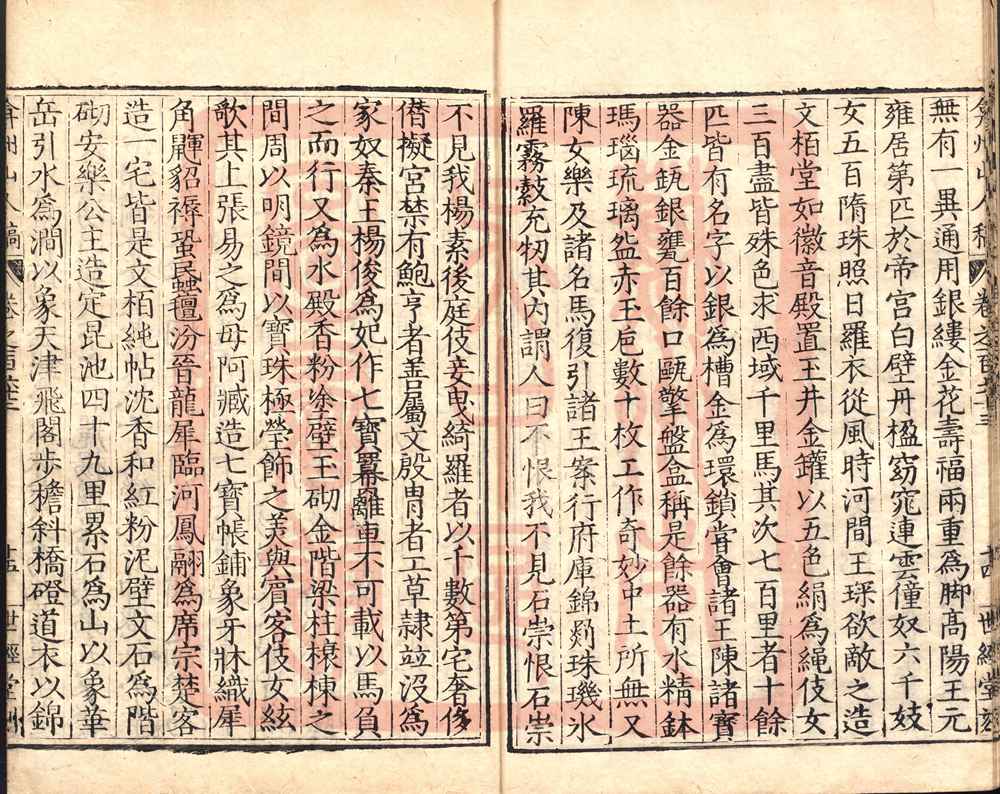 弇州山人稿 卷之百六十三 十四 世經堂刻
無有一異通用銀縷金花壽福兩重爲脚高陽王元
雍居第匹於帝宫白壁丹楹窈窕連雲僮奴六千妓
女五百隋珠照日羅衣從風時河間王琛欲敵之造
文栢堂如徽音殿置玉井金鑵以五色絹爲繩伎女
三百盡皆殊色求西域千里馬其次七百里者十餘
匹皆有名字以銀爲槽金爲環鎖嘗會諸王陳諸寶
器金瓨銀甕百餘口甌擎盤盒稱是餘器有水精鉢
瑪瑙琉璃盌赤玉巵數十枚工作奇妙中土所無又
陳女樂及諸名馬復引諸王案行府庫錦罽珠璣氷
羅霧縠充牣其内謂人曰不恨我不見石崇恨石崇
不見我楊素後庭伎妾曳綺羅者以千數第宅奢侈
僣擬宫禁有鮑亨者善屬文殷胄者工草隷竝没爲
家奴秦王楊俊爲妃作七寶羃䍦車不可載以馬負
之而行又爲水殿香粉塗壁玉砌金階梁柱榱棟之
間周以明鏡間以寶珠極瑩飾之美與賓客伎女絃
歌其上張易之爲母阿臧造七寶帳鋪象牙牀織犀
角䶎貂褥蛩䖟氊汾晉龍犀臨河鳳翮爲席宗楚客
造一宅皆是文栢純帖沈香和紅粉泥壁文石爲階
砌安樂公主造定昆池四十九里累石爲山以象華
岳引水爲澗以象天津飛閣步檐斜橋磴道衣以錦
弇州山人稿 卷之百六十三 十五 世經堂刻